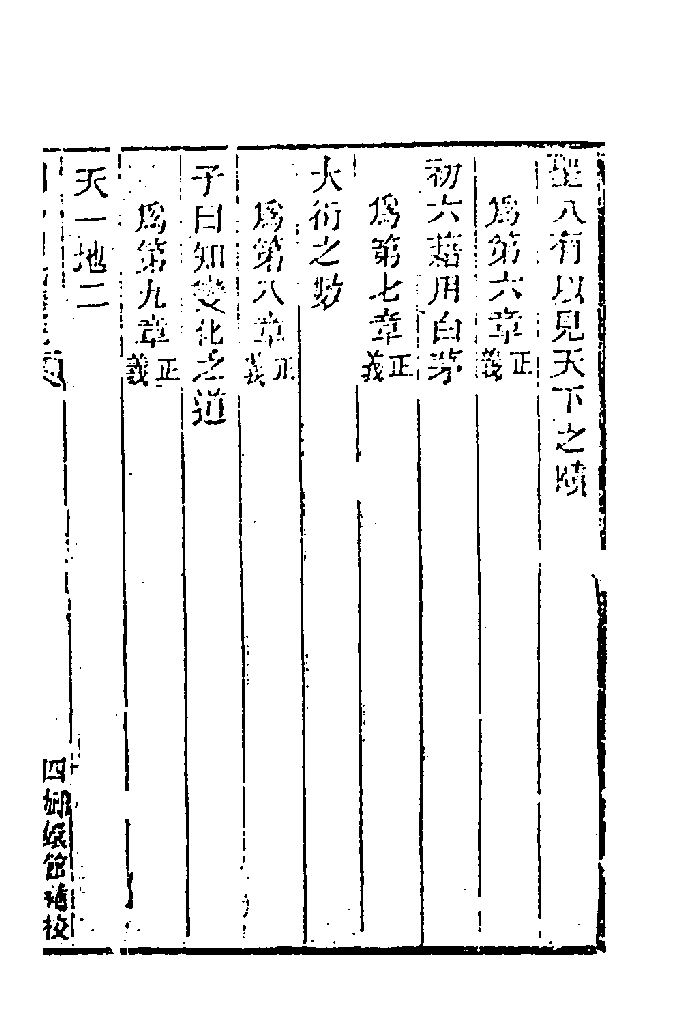 聖人有以見天下之賾
為第六章正義
初六藉用白茅
為第七章正義
大衍之數
為第八章正義
子曰知變化之道
為第九章正義
天一地二
四 嫏嬛館補校